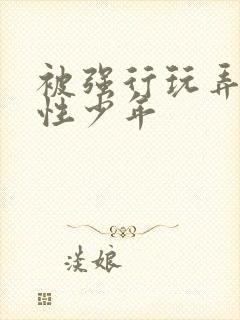 被强行玩弄
性少年
淡娘